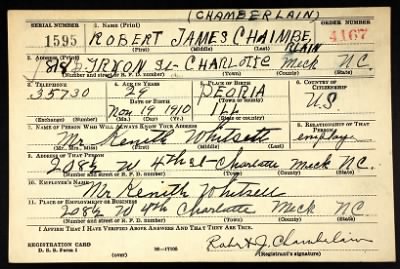 (CHAMBERLAIN)
SERIAL NUMBER 1. NAME (Print) ORDER NUMBER
1595 ROBERT JAMES CHAIMBE 4167
RLAIN
(First) (Middle) (Last)
2. ADDRESS (Print)
TRYON St- CHARLOTTE Meck N.C.
(Number and street or R. F. D. number) (Town) (County) (State)
3. TELEPHONE 4. AGE IN YEARS 5. PLACE OF BIRTH 6. COUNTRY OF CITIZENSHIP
35730 PEORIA
DATE OF BIRTH (Town or county)
Nov 19 1910 Ill U.S.
(Exchange) (Number) (Mo.) (Day) (Yr.) (State or country)
7. NAME OF PERSON WHO WILL ALWAYS KNOW YOUR ADDRESS 8. RELATIONSHIP OF THAT PERSON
Mr Kenith Whitsett
(Mr., Mrs., Miss) (First) (Middle) (Last)
9. ADDRESS OF THAT PERSON
208½ W 4th st Charlotte Meck N.C.
(Number and street or R. F. D. number) (Town) (County) (State)
10. EMPLOYER'S NAME
Mr Kenith Whitsett
11. PLACE OF EMPLOYMENT OR BUSINESS
208½ W 4th Charlotte Meck N.C.
(Number and street or R. F. D. number) (Town) (County) (State)
I AFFIRM THAT I HAVE VERIFIED ABOVE ANSWERS AND THAT THEY ARE TRUE.
REGISTRATION CARD
D. S. S. Form 1
Chamberlain
(Registrant's signature)